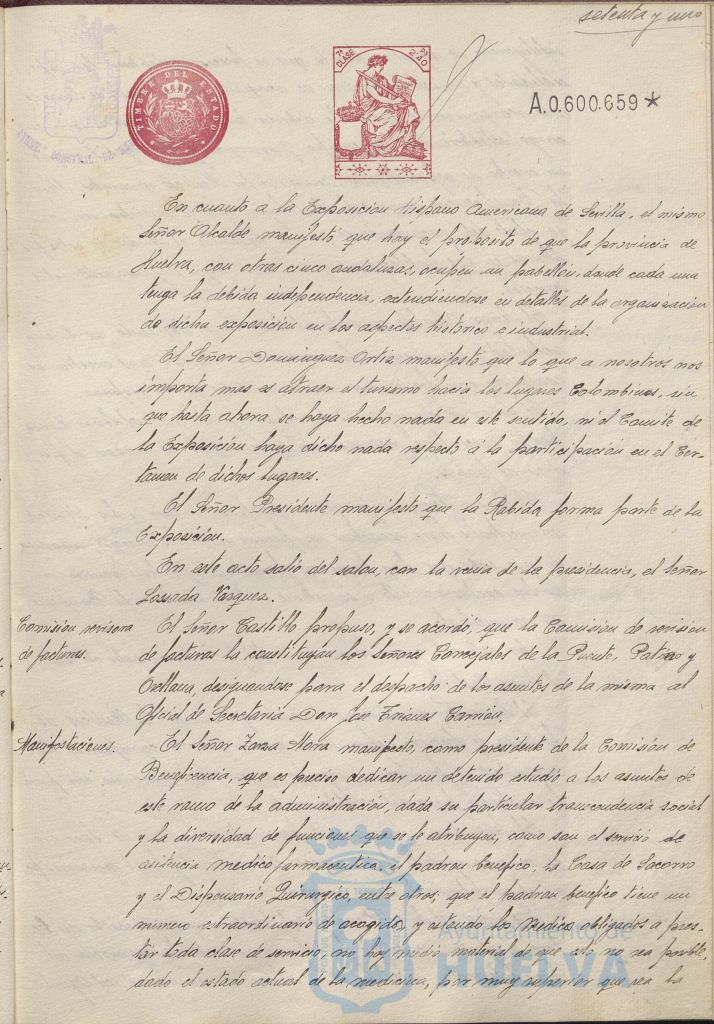 setenta y uno
TIMBRE DEL ESTADO
7ª CLASE
Ps 2'40
A.0.600.659 *
En cuanto a la Exposición Hispano Americana de Sevilla, el mismo
Señor Alcalde manifestó que hay el proposito de que la provincia de
Huelva, con otras cinco andaluzas, ocupen un pabellón, donde cada una
tenga la debida independencia, extendiendose en detalles de la organización
de dicha exposición en los aspectos histórico e industrial.
El Señor Dominguez Ortiz manifestó que lo que a nosotros nos
importa mas es atraer el turismo hacia los lugares Colombinos, sin
que hasta ahora se haya hecho nada en este sentido, ni el Comite de
la Exposición haya dicho nada respecto á la participación en el Cer-
tamen de dichos lugares.
El Señor Presidente manifestó que la Rabida forma parte de la
Exposición.
En este acto salió del salon, con la venia de la presidencia, el Señor
Lossada Vazquez.
Comisión revisora
de facturas.
El Señor Castillo propuso, y se acordó, que la Comisión de revision
de facturas la constituyan los Señores Concejales de la Puente, Patiño y
Orellana, designandose para el despacho de los asuntos de la misma al
Oficial de Secretaria Don José Trianes Carrión.
Manifestaciones.
El Señor Zarza Mora manifestó, como presidente de la Comisión de
Beneficencia, que es preciso dedicar un detenido estudió a los asuntos de
este ramo de la administración, dada su particular transcendencia social
y la diversidad de funciones que se le atribuyen, como son el servicio de
asistencia medico farmaceutica, el padron benefico, la Casa de Socorro
y el Dispensario Quirurgico, entre otros; que el padron benefico tiene un
número extraordinario de acogidos, y estando los Medicos obligados a pres-
tar toda clase de servicio, no hay medio material de que esto no sea posible,
dado el estado actual de la medicina, por muy superior que sea la
Ayuntamiento de
HUELVA